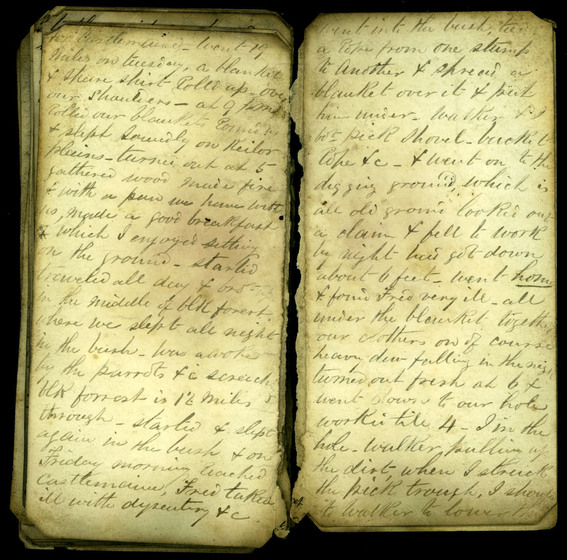 for Castlemaine - went 19
Miles on tuesday, a blanket
& spare shirt Rolled up - over
our shoulders - at 9
Rolled our blankets round us
& slept soundly on Keilor
plains - turned out at 5 -
gathered wood made fire
& with a pan we have with
us, made a good breakfast
& which I enjoyed sitting
on the ground - started
traveled all day &
in the middle of blk forrest,
where we slept all night
in the bush - was awoke
by the parrots & c screech
blk forrest is 12 miles
through - started & slept
again in the bush & on
Friday morning reached
Castlemaine, Fred taked
ill with dysentry & c
went into the bush, tied
a rope from one stump
to Another & spread a
blanket over it & put
him under - walker & I
pick shovel - bucket
Rope & c - & went on to the
digging ground, which is
all old ground looked out
a claim & fell to work
by night had got down
about 6 feet - went home
& found Fred very ill - all
under the blanket together
our clothers on of course
heavy dew falling in the night
turned out fresh at 6 &
went down to our hole
workd tile 4 - I in the
hole - walker pulling up
the dirt when I struck
the pick trough, I shout
to walker to lower